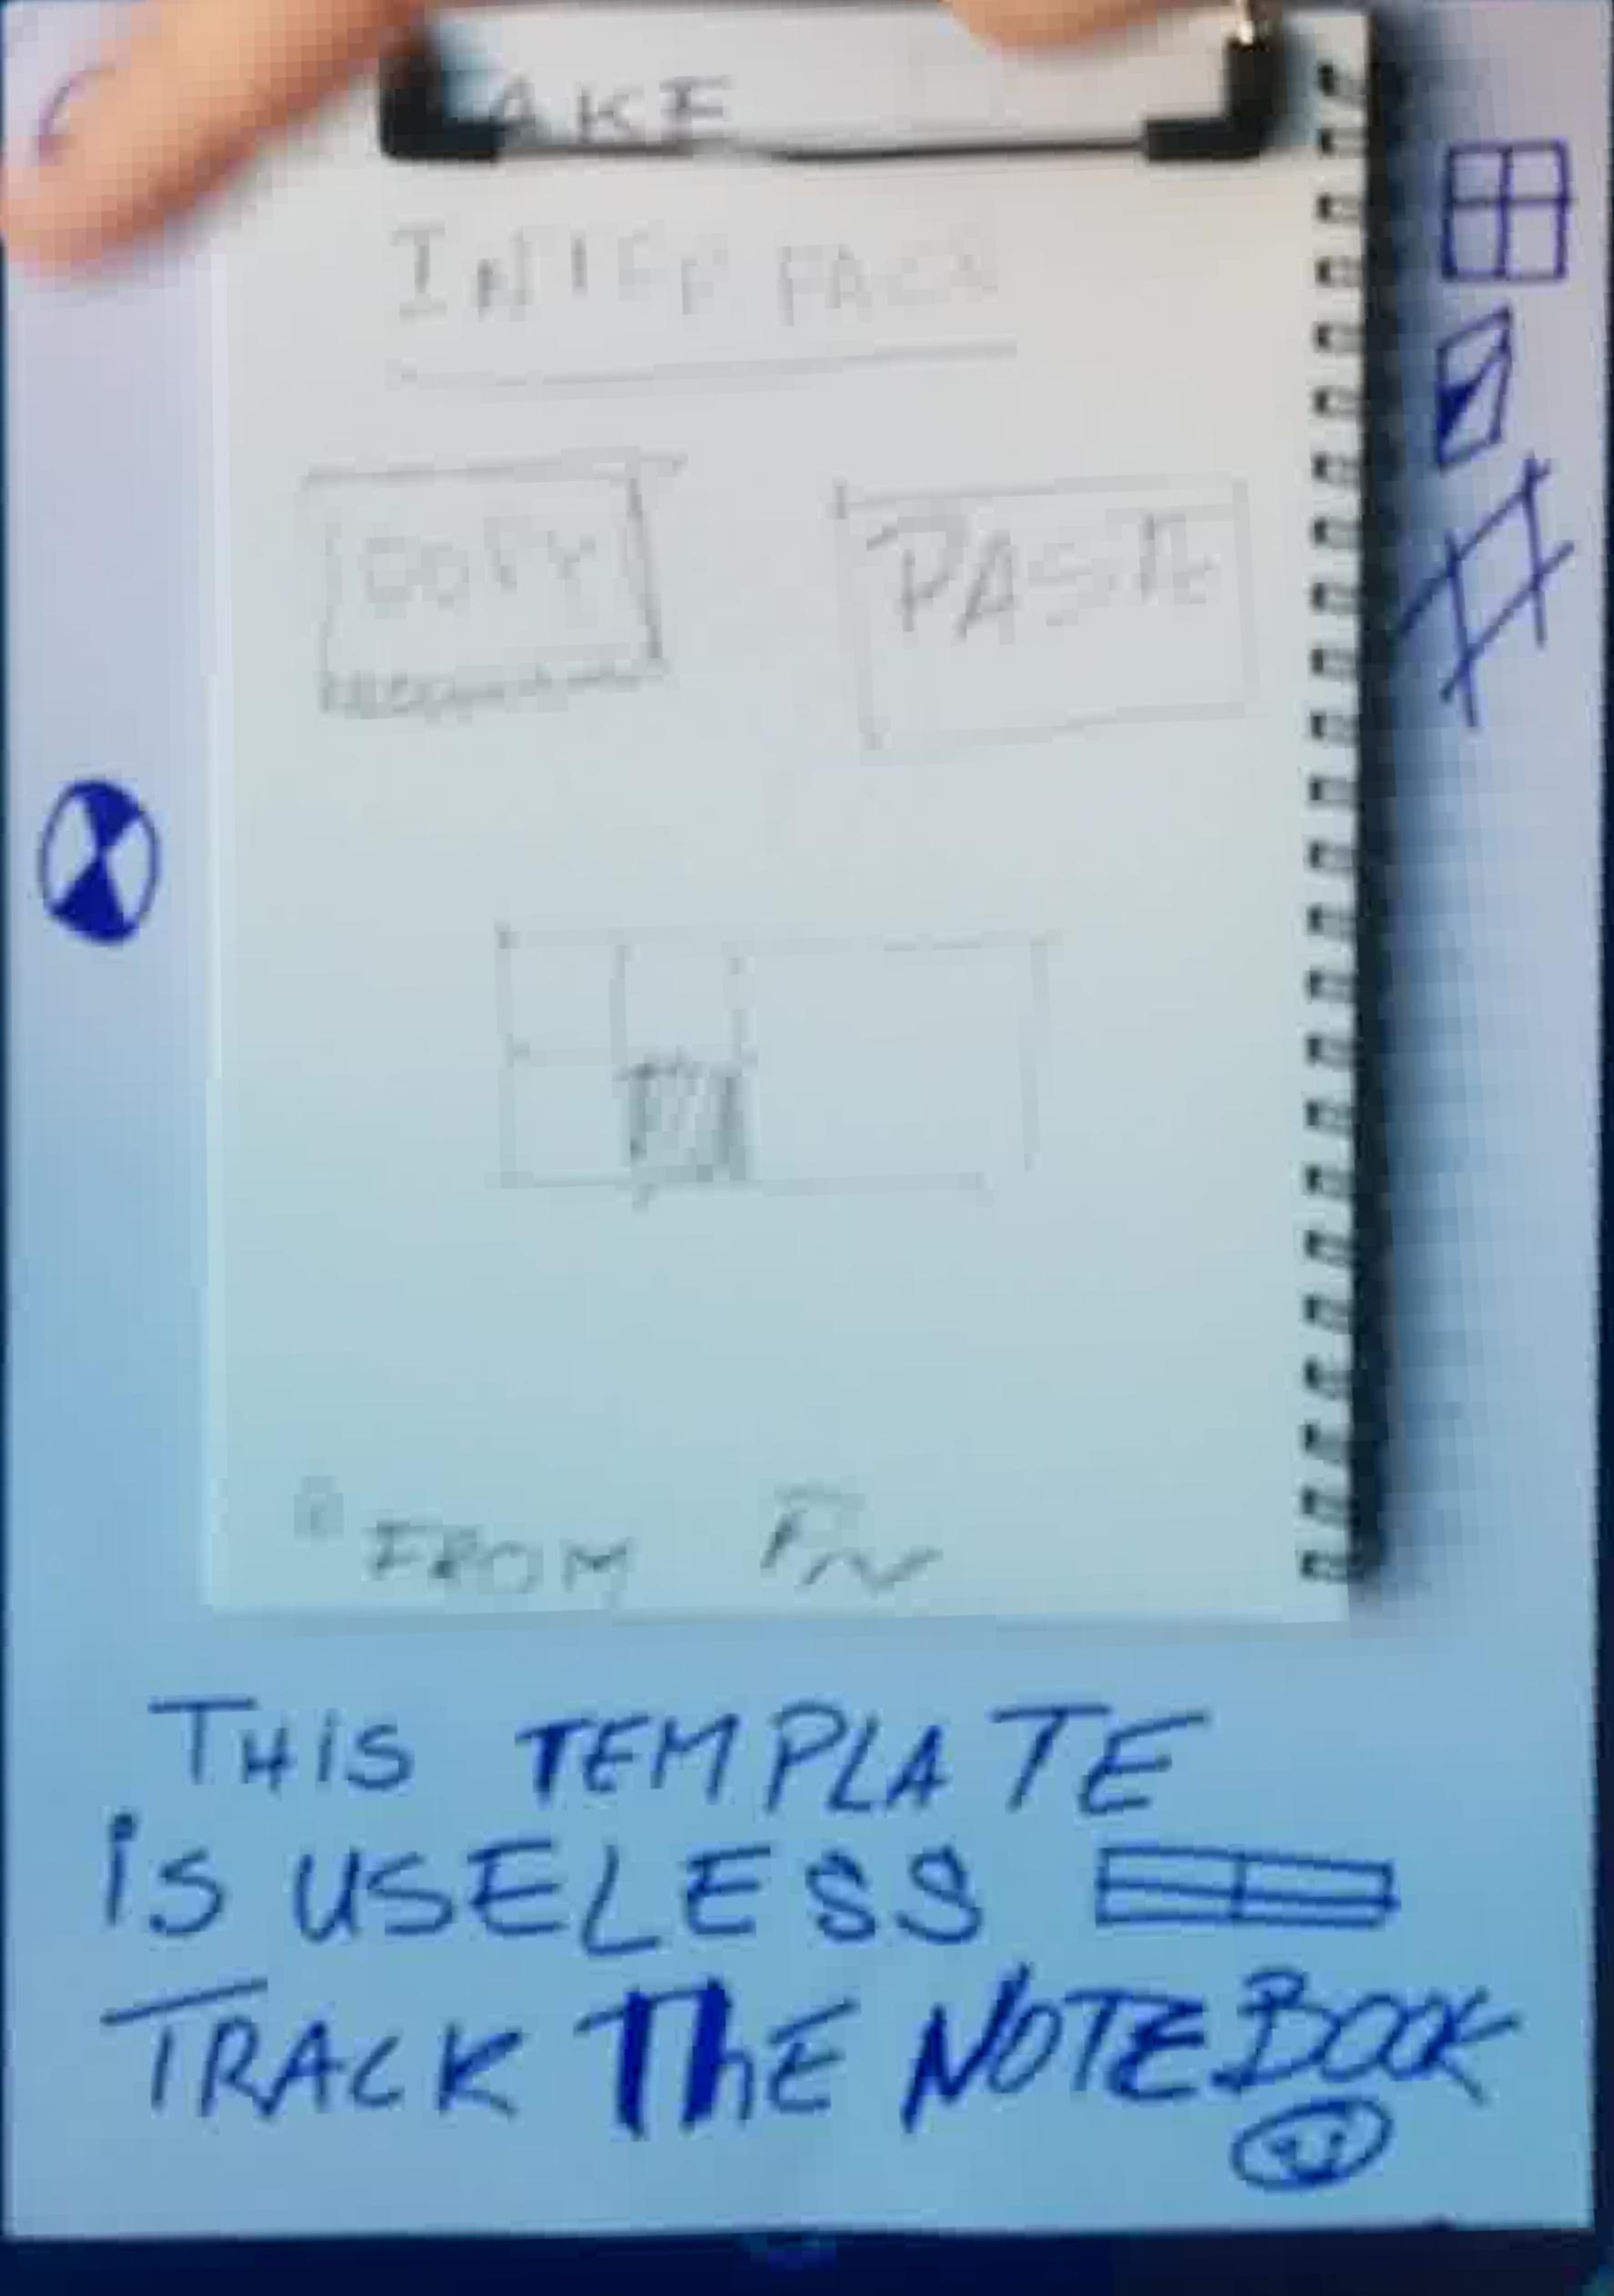 AKE
INTERFACE
COPY
PASTE
FROM
THIS TEMPLATE
iS USELESS
TRACK ThE NOTEBOOK